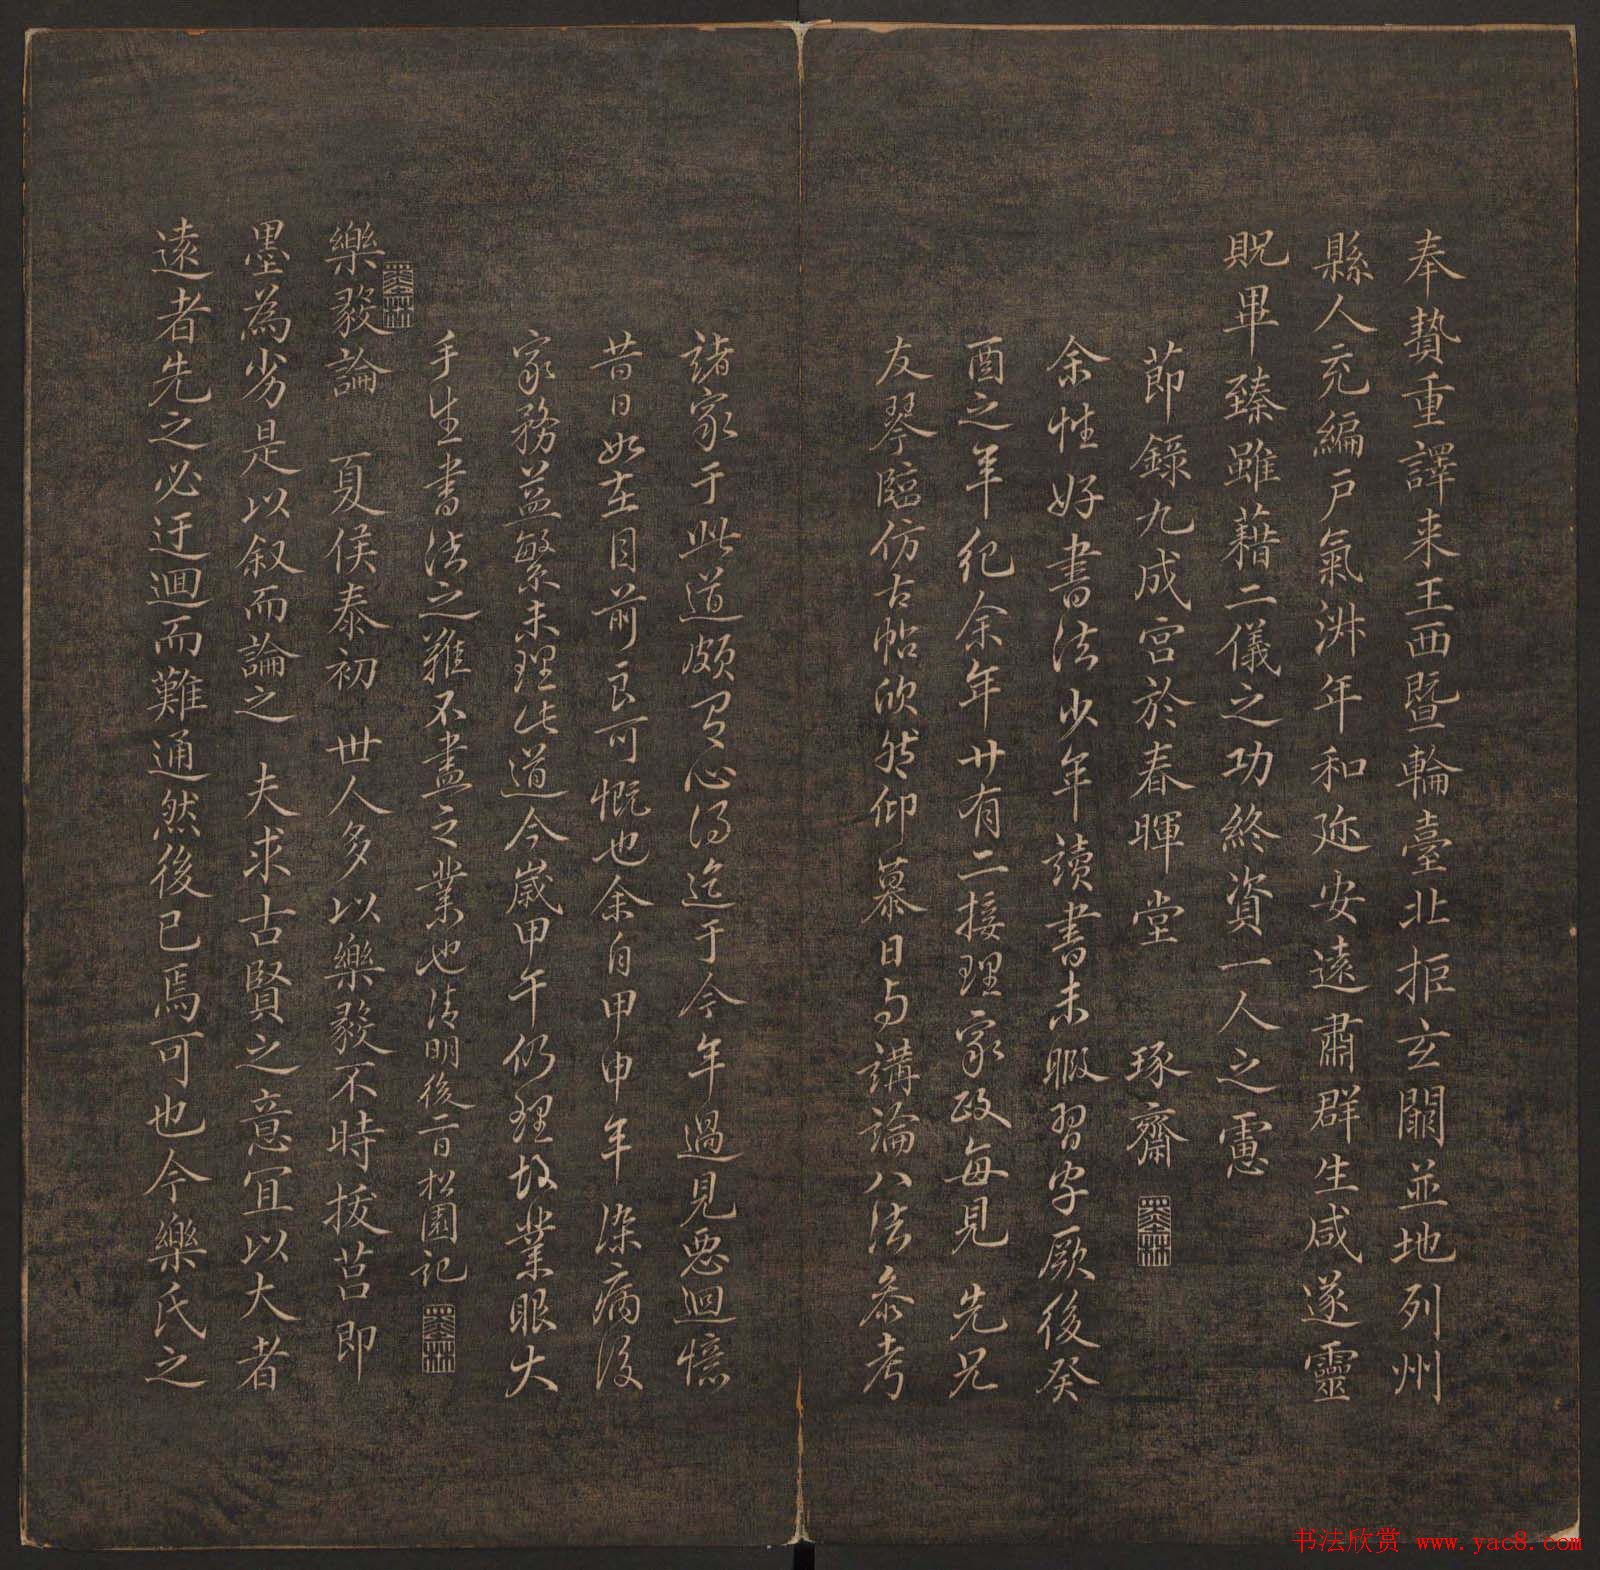 奉贄重譯来王西暨輪臺北拒玄闕並地列州
縣人充編戶氣淋年和迩安遠肅群生咸遂靈
貺畢臻雖藉二儀之功終資一人之慮
節錄九成宮於春暉堂 琢齋
余性好書法少年讀書未暇習字厥後癸
酉之年紀余年廿有二接理家政每見先兄
友琴臨仿古帖欣然仰慕日与講論八法叅考
諸家于此道頗有心得迄于今年過見惡迴憶
昔日如在目前良可慨也余自甲申年染病後
家務益繁未理此道今歲甲午仍理故業眼大
手生書法之難不盡之業也清明後二日松園記
樂毅論 夏侯泰初 世人多以樂毅不時拔莒即
墨為劣是以叙而論之 夫求古賢之意宜以大者
遠者先之必迂迴而難通然後已焉可也今樂氏之
书法欣赏 www.yac8.com